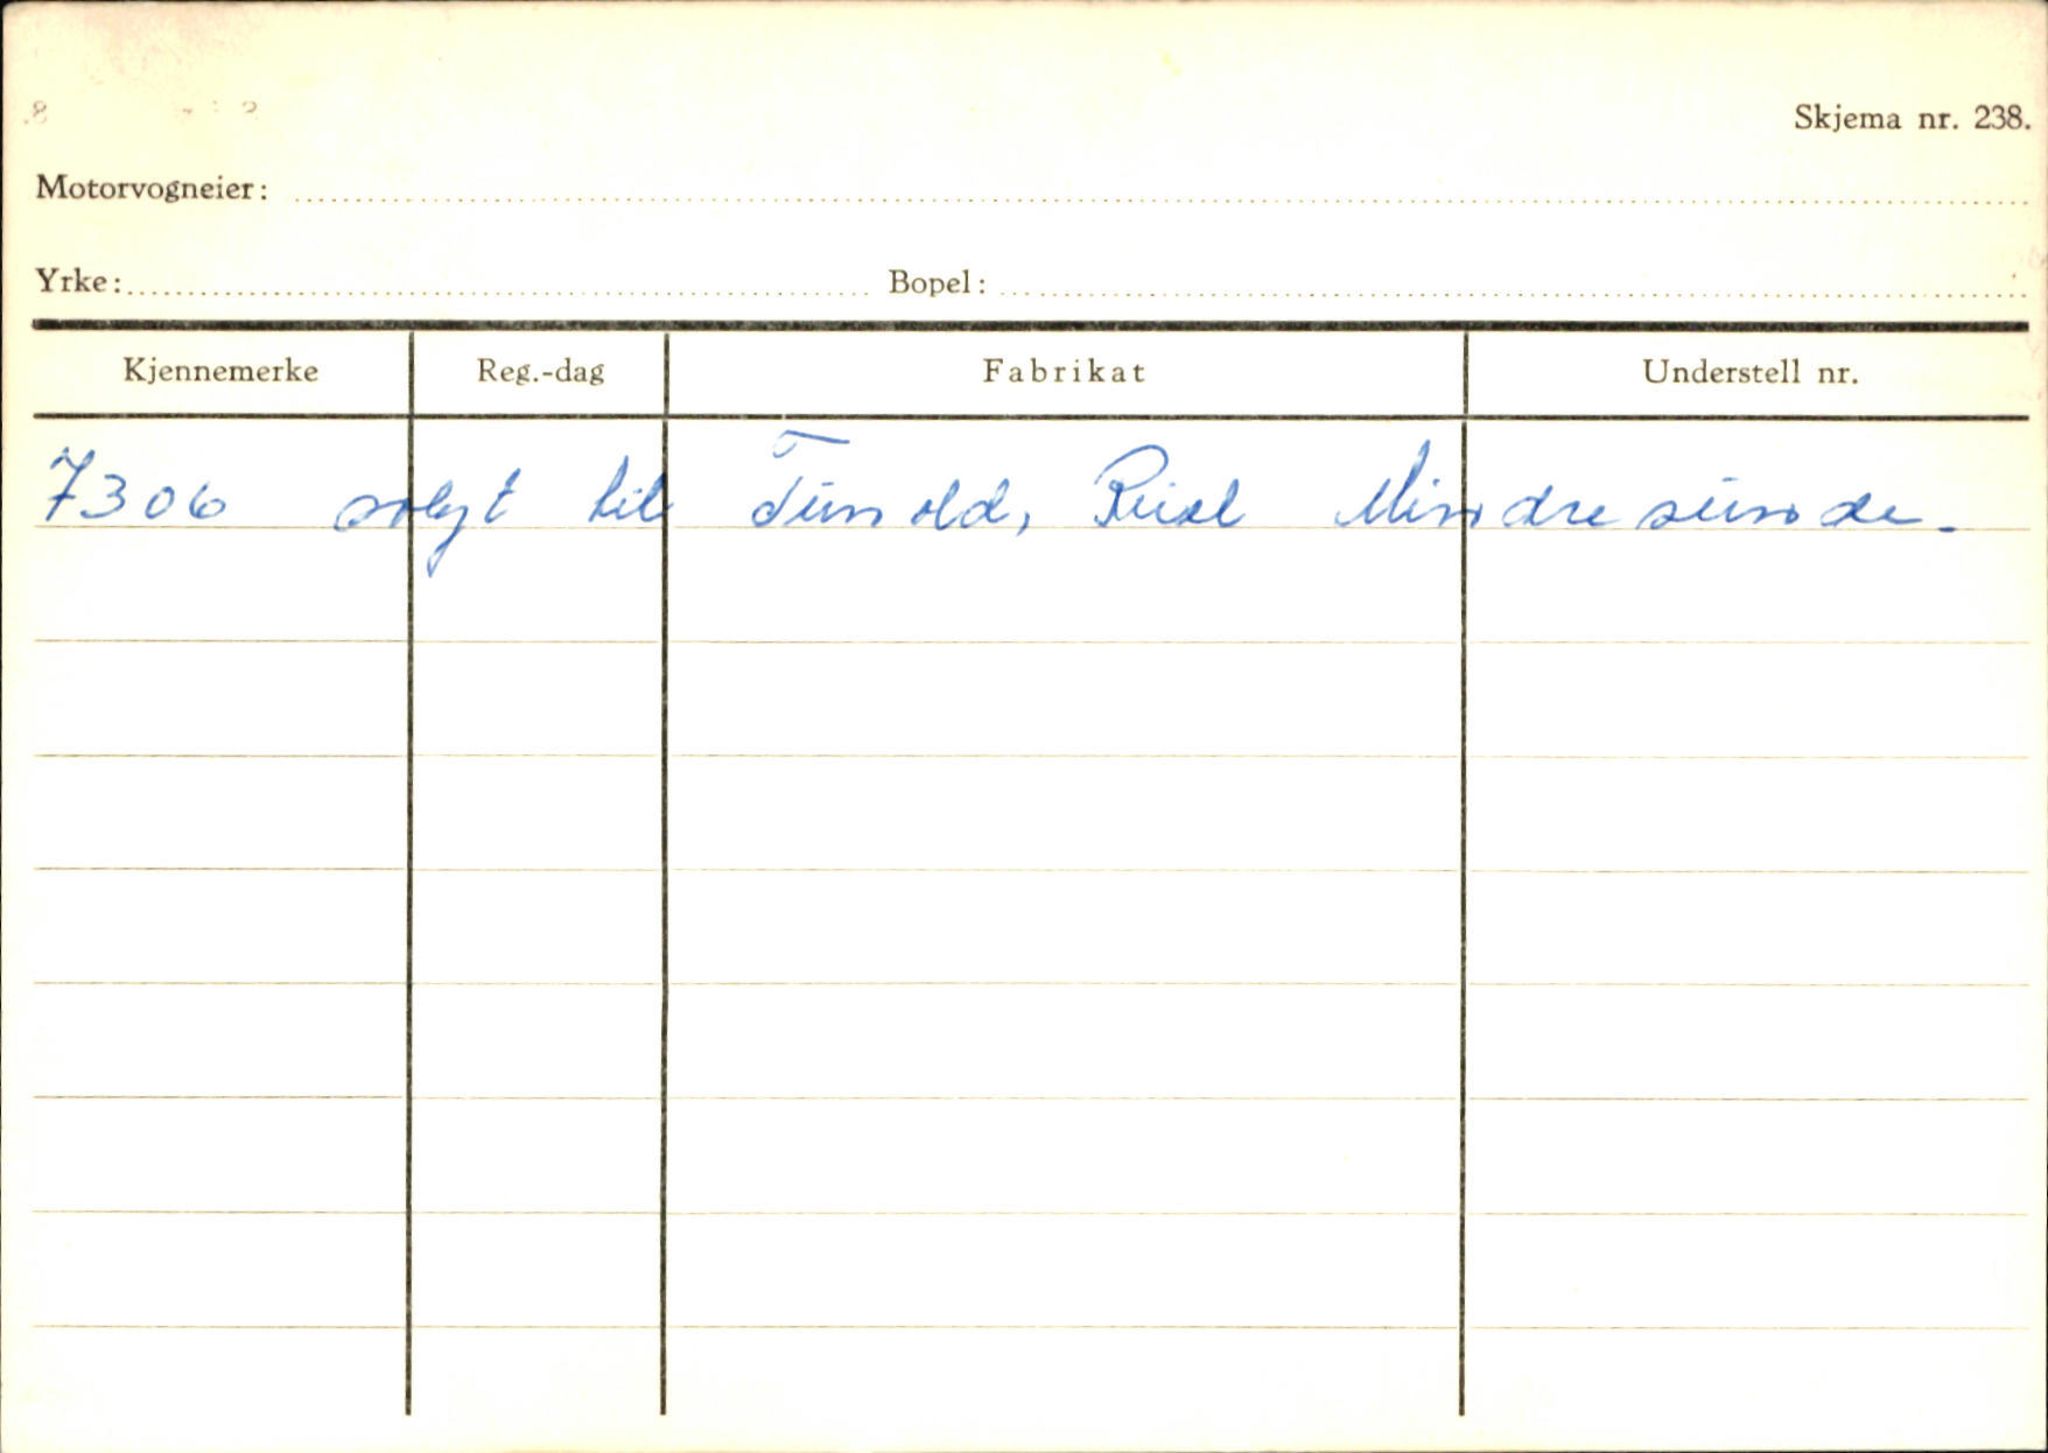 Skjema nr. 238.
Motorvogneier:
Yrke: Bopel:
Kjennemerke Reg.-dag Fabrikat Understell nr.
7306 solgt til Tunold, Mindresunde.